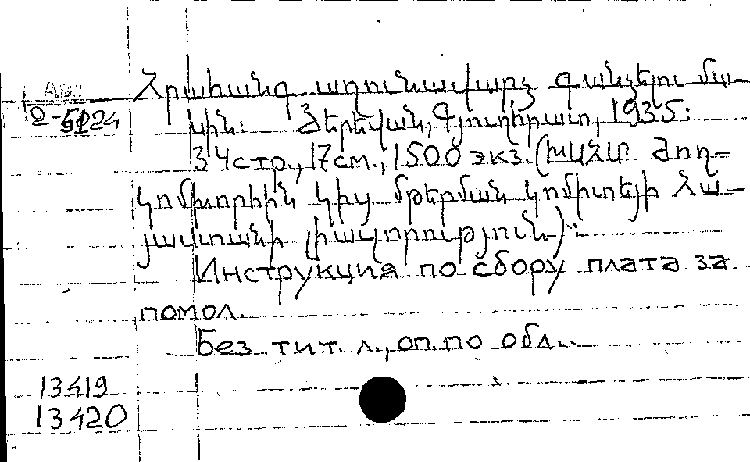 Հրահանգ աղունավարձ գանձելու մա-
սին: Յերևան, Գյուղհրատ, 1935:
34 стр., 17 см., 1500 экз. (ԽՍՀՄ Ժող-
կոմխորհին կից մթերման կոմիտեյի Հա-
յաստանի լիազորություն):
Инструкция по сбору плата за
помол.
Без тит. л., оп. по обл.
13419
13420